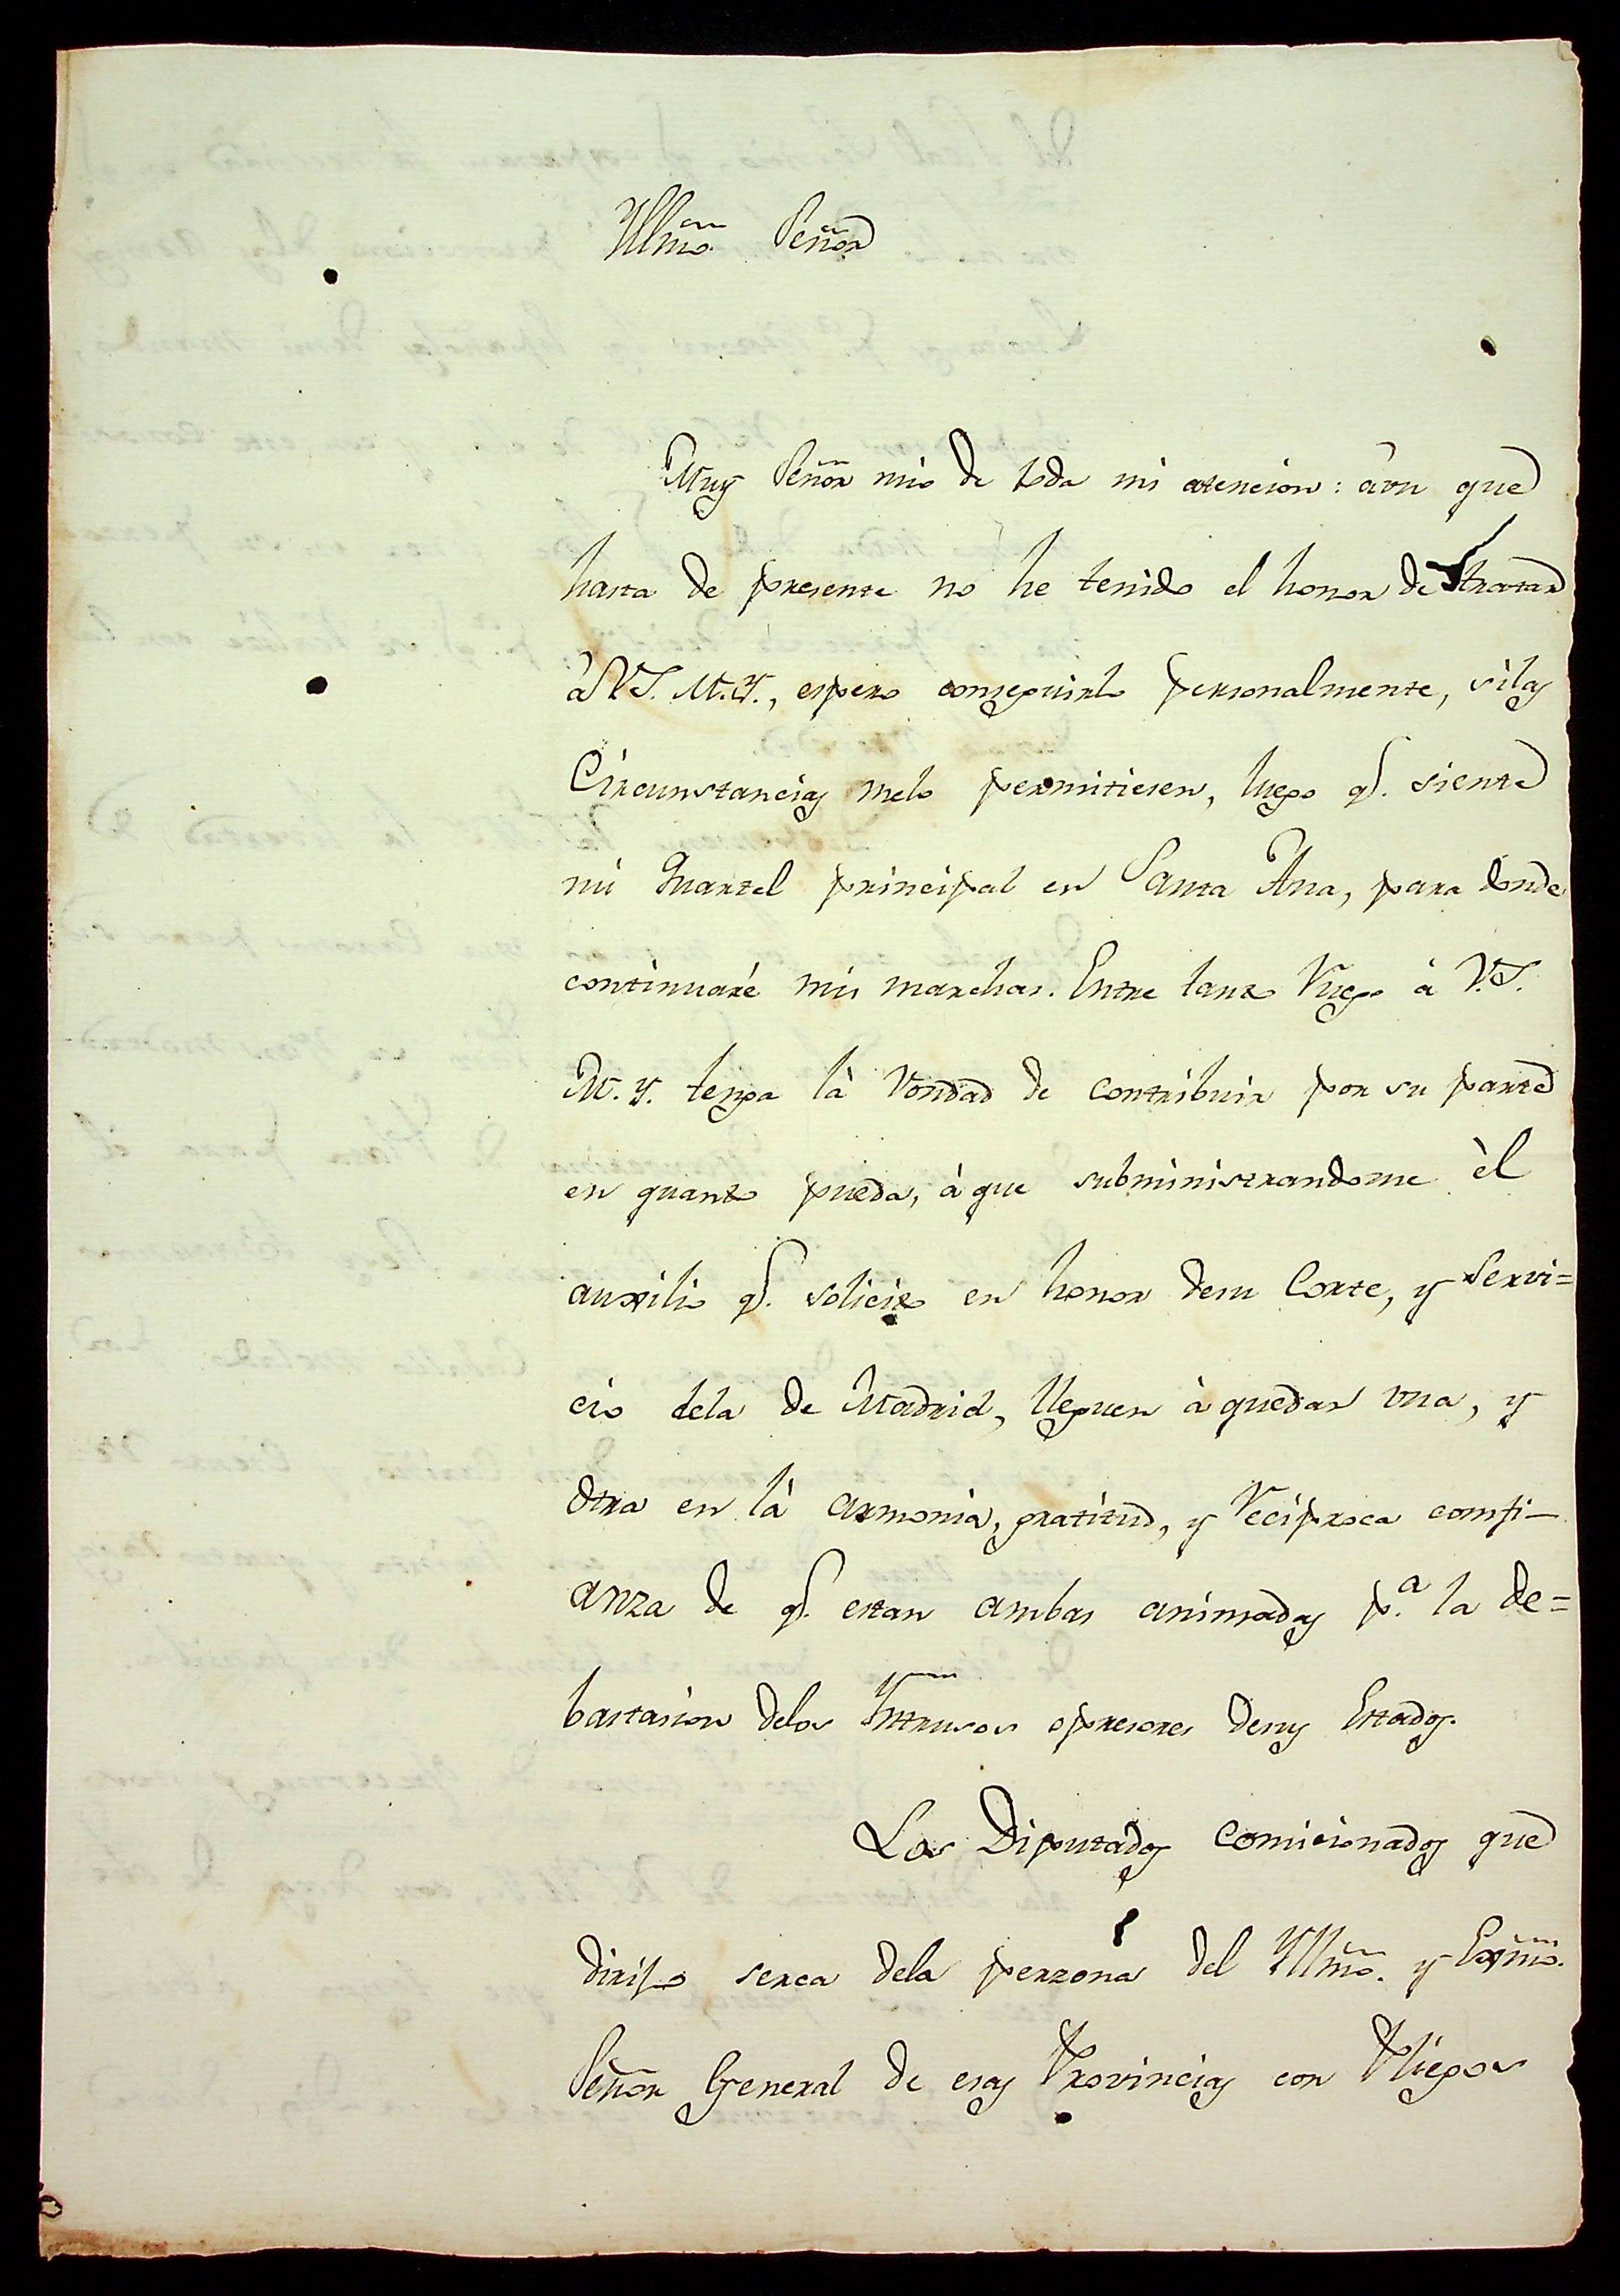 Yllmo. Señor
Muy Señor mio de toda mi atencion: aun que
hasta de presente no he tenido el honor de tratar
à V.S. M.Y., espero conseguirlo personalmente, silas
Circunstancias melo permitiesen, luego q̃. siente
mi Quartel principal en Santa Ana, para donde
continuaré mis marchas. Entre tanto Ruego à V.S.
M.Y. tenga là Vondad de contribuir por su parte
en quanto pueda, à que subministrandome èl
auxilio q̃. solicito en honor desu Corte, y servi=
cio dela de Madrid, lleguen à quedar una, y
otra en là armonia, gratitud, y Reciproca comfi-
anza de q̃. estan ambas animadas p.a la de=
bastasion delos Yntrusos opresores desus Estados.
Los Diputados comicionados que
dirijo serca dela perzona del Yllmo. y Exmo.
Señor General de esas Provincias con Pliegos